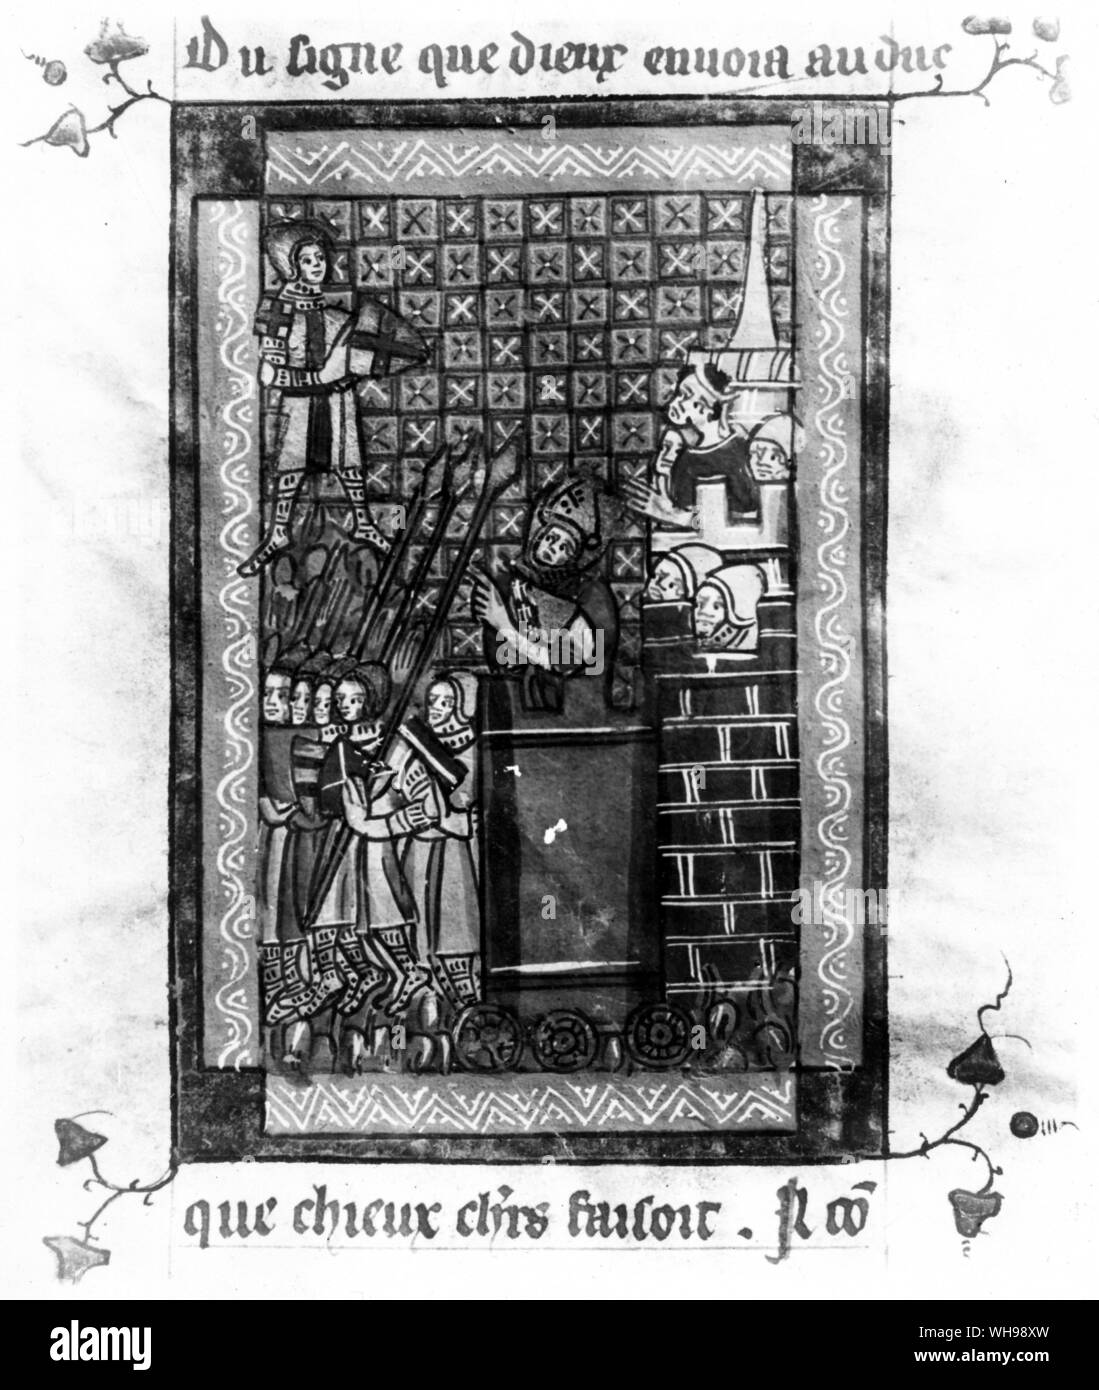 Du signe que dieux enuoia au duc
que chieux ch'rs faisoit. Il cō
a
alamy
alamy
Image ID: WH98XW
www.alamy.com